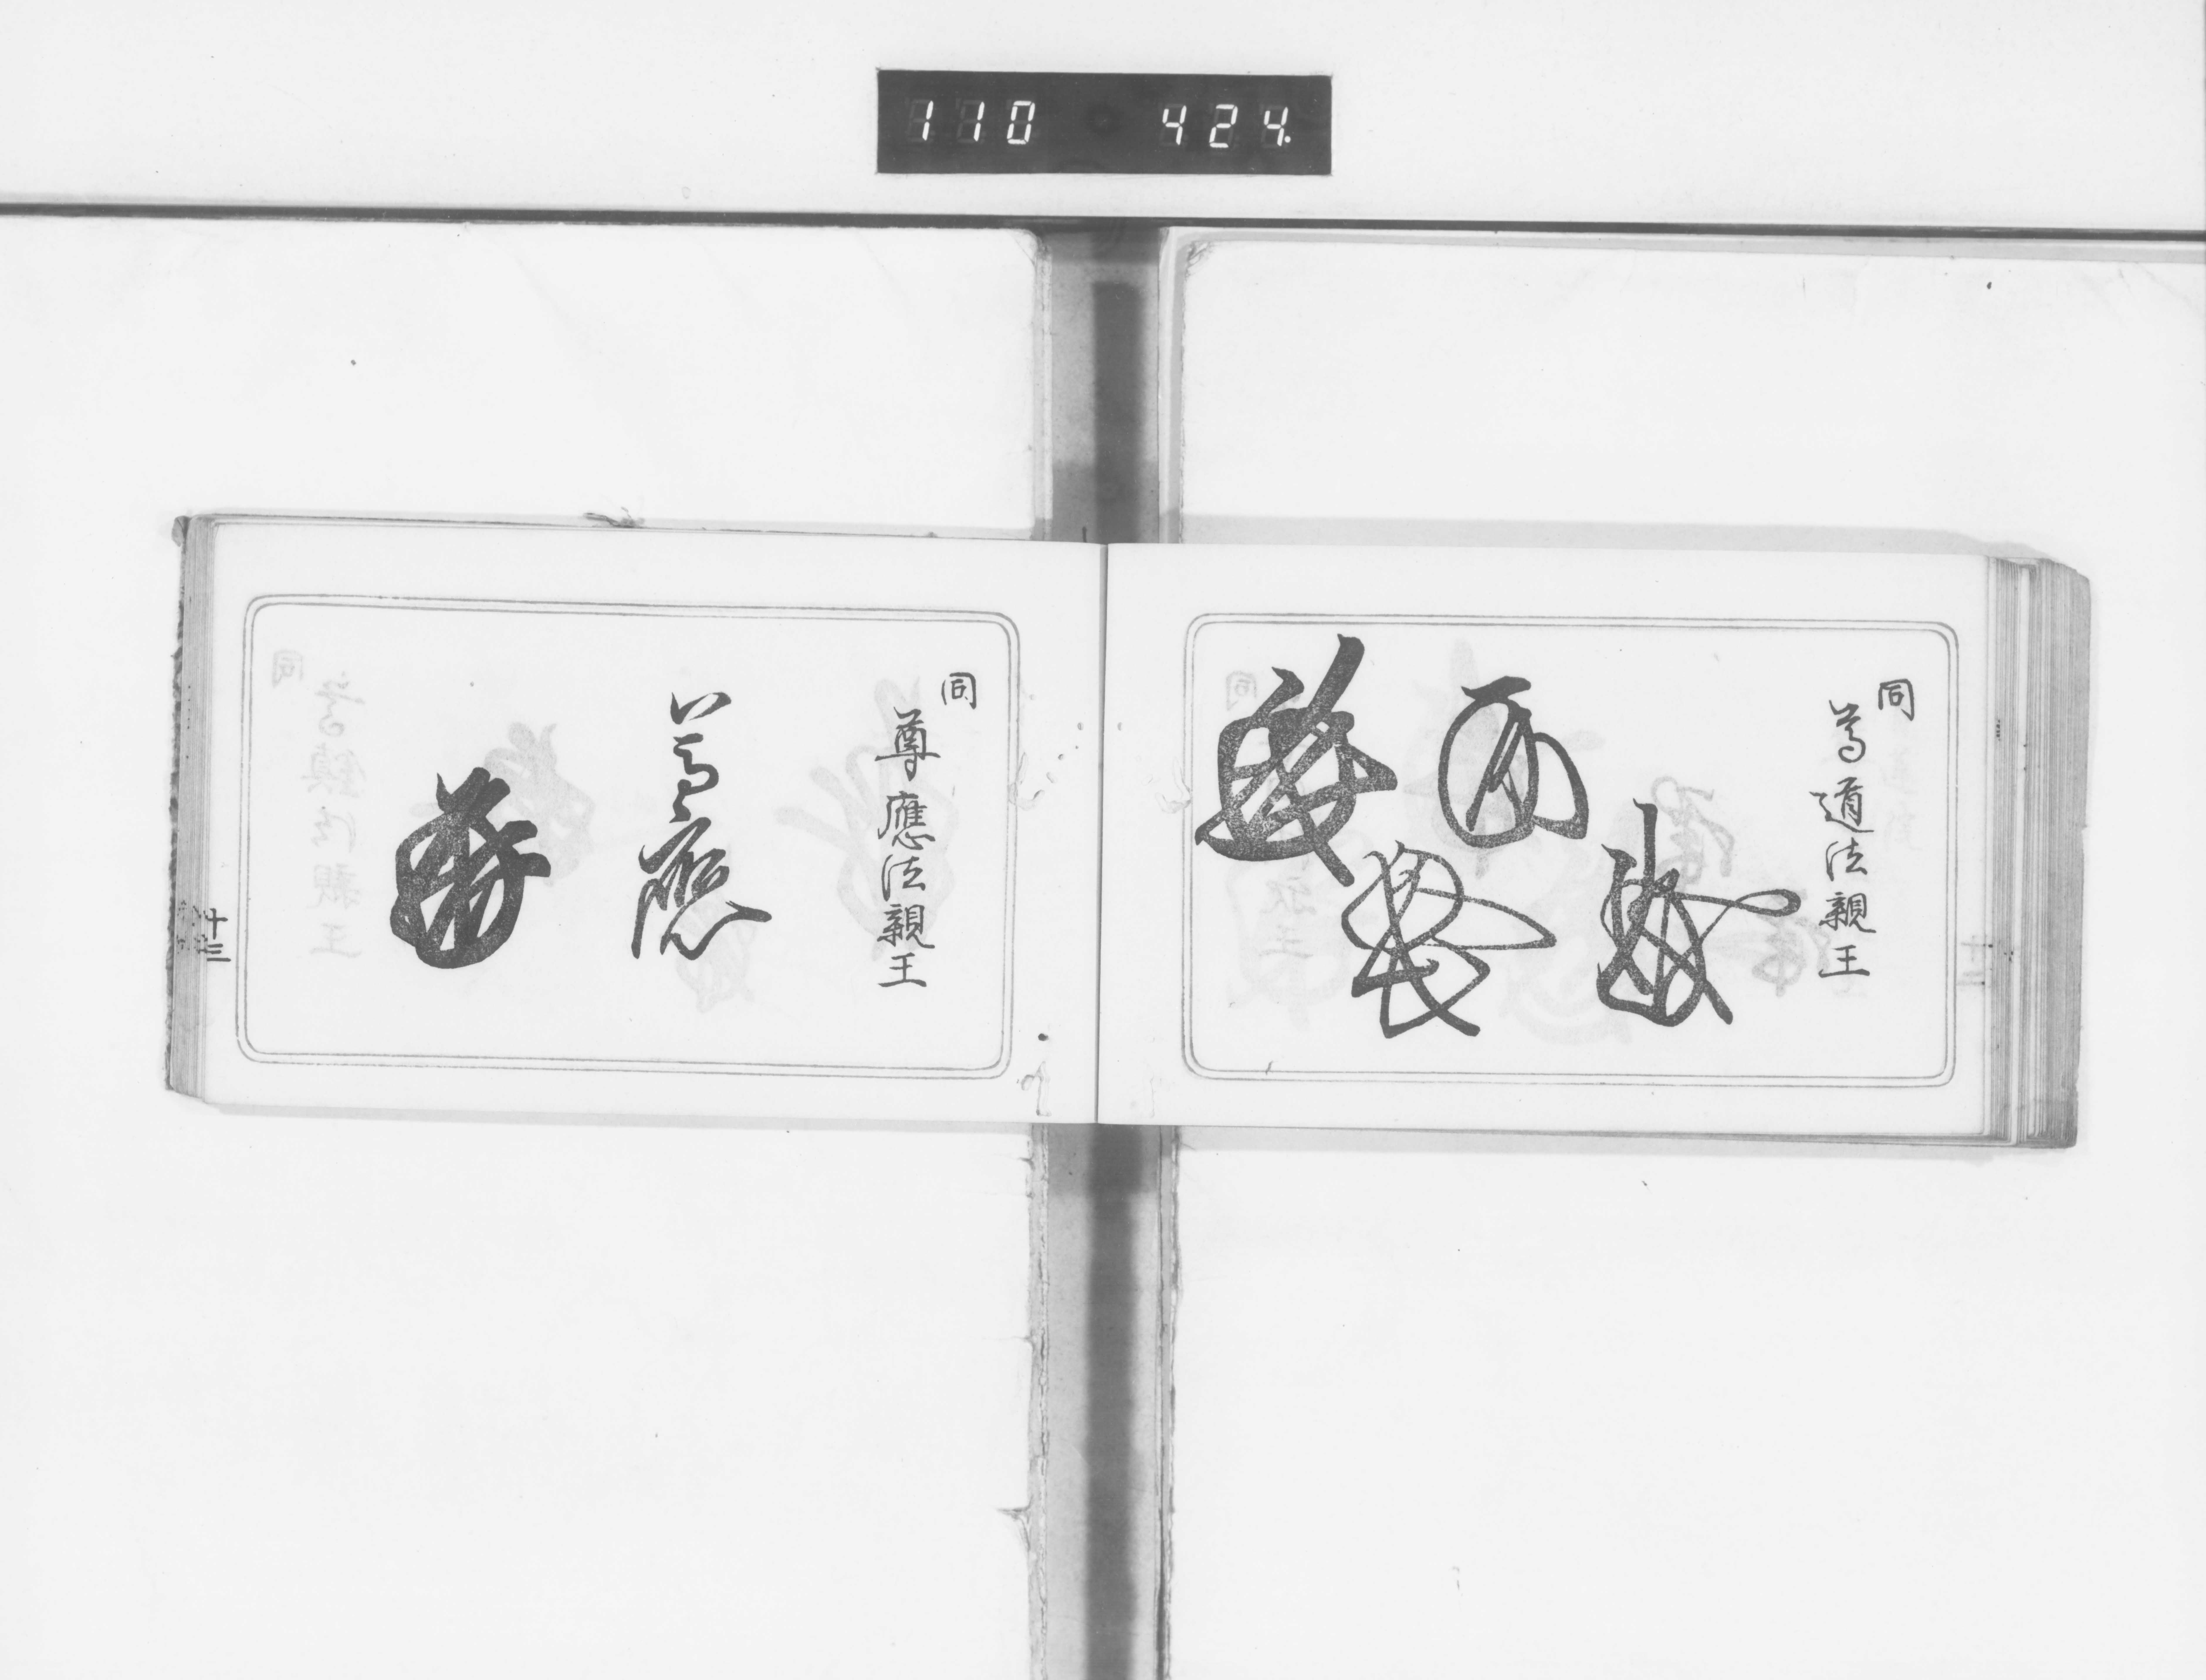 110 424.
同
尊道法親王
同
尊應法親王
尊應
十三